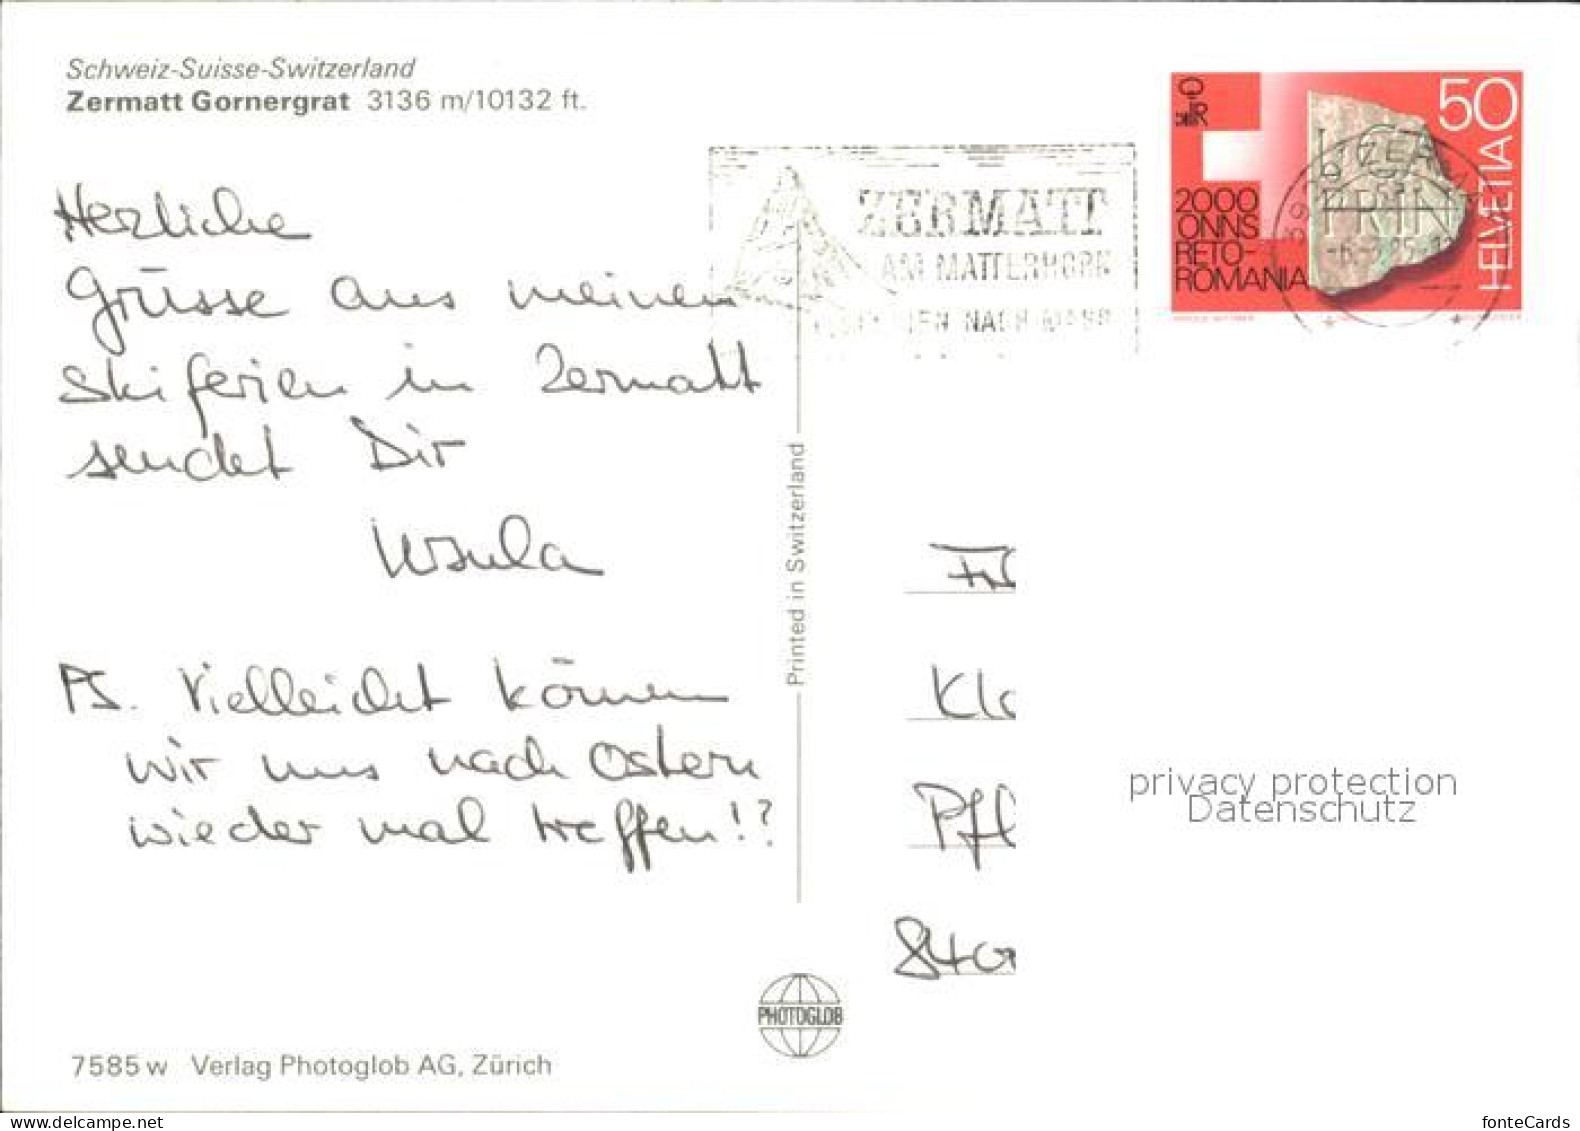 Schweiz-Suisse-Switzerland
Zermatt Gornergrat 3136 m/10132 ft.
Herzliche
Grüsse aus meinen
Skiferien in Zermatt
sendet Dir
Ursula
PS. Vielleicht können
wir uns nach Ostern
wieder mal treffen!?
7585 w Verlag Photoglob AG, Zürich
Printed in Switzerland
PHOTOGLOB
ZERMATT
AM MATTERHORN
NACH
50
HELVETIA
2000
ONNS
RETO-
ROMANIA
Kl
Pfl
840
privacy protection
Datenschutz
fonteCards